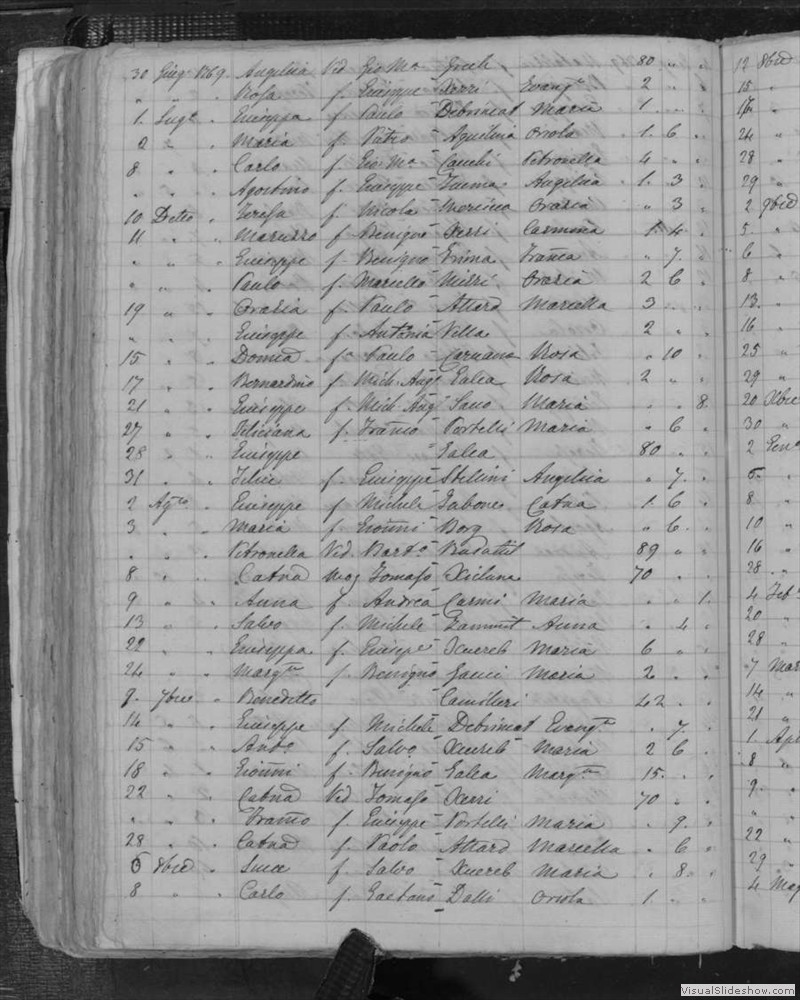 30 Giug. 1869. Angelica Vid Gio Ma Grech 80 " .
" " . Rosa f. Giuseppe Xerri Evang.a 2 " .
1. Lug.o . Giuseppa f. Paolo Debrincat Maria 1. . .
2 " . Maria f. Pietro Aquilina Orsola . 1. 6 .
8 " . Carlo f. Gio Ma Cauchi Petronella 4 . .
" . . Agostino f. Giuseppe Angelica . 1. 3 .
10 Detto . Teresa f. Nicola Grazia " 3 .
11 . . f. Benigno Xerri Carmena 1 4 .
" . " Giuseppe f. Benigno Franca " 7. .
" " . Paulo f. Marcello Grazia 2 6 .
19 . . Grazia f. Paulo Attard Marcella 3 . .
" . . Giuseppe f. Antonia Vella 2 " .
15 . . f. Paulo Caruana Rosa " 10 .
17 " . Bernardino f. Mich. Ang.o Galea Rosa 2 " .
21 " . Giuseppe f. Mich Ang.o Maria . . 8
27 " . Feliciana f. Franco Portelli Maria " 6 .
28 " . Giuseppe Galea 80 . .
31 " . f. Giuseppe Stellini Angelica " 7. .
2 Ag.to . Giuseppe f Michele Tabone Catna . 1. 6 .
3 " . Maria f. Gioanni Borg Rosa " 6. .
" . . Petronella Vid. Bart.o 89 " .
8 . . Catna Mog Tomaso Xicluna 70 . .
9 " . Anna f. Andrea Maria . . 1.
13 " . Salvo f. Michele Zammit Anna . 4 .
22 " . Giuseppa f. Giusepe Xuereb Maria 6 " .
24 " . Marg.ta f. Benigno Gauci Maria 2 . .
9. 7bre " Benedetto Camilleri 42 . .
14 " . Giuseppe f. Michele Debrincat Evang.a . 7. .
15 " . And.a f. Salvo Xuereb Maria 2 6 .
18 " . Gioanni f. Benigno Galea Marg.ta 15. . .
22 " . Catna Vid Tomaso Xerri 70 " .
" . . Franco f. Giuseppe Portelli Maria . 9. .
28 " . Catna f. Paolo Attard Marcella . 6 .
6 8bre . Luca f. Salvo Xuereb Maria . 8 .
8 " . Carlo f. Gaetano Dalli Orsola 1 . .
12 8bre
15 "
24 "
28 "
29 "
2 9bre
5 "
6 "
8 "
13. "
16 "
25 "
29 "
20 Xbre
30 "
2 Gen
5.
8 "
10 "
16 "
28 "
4 Feb
20 "
28 "
7 Mar
14 "
21 "
1. Apr
8 "
9. "
22 "
29 "
4 Mag
VisualSlideshow.com